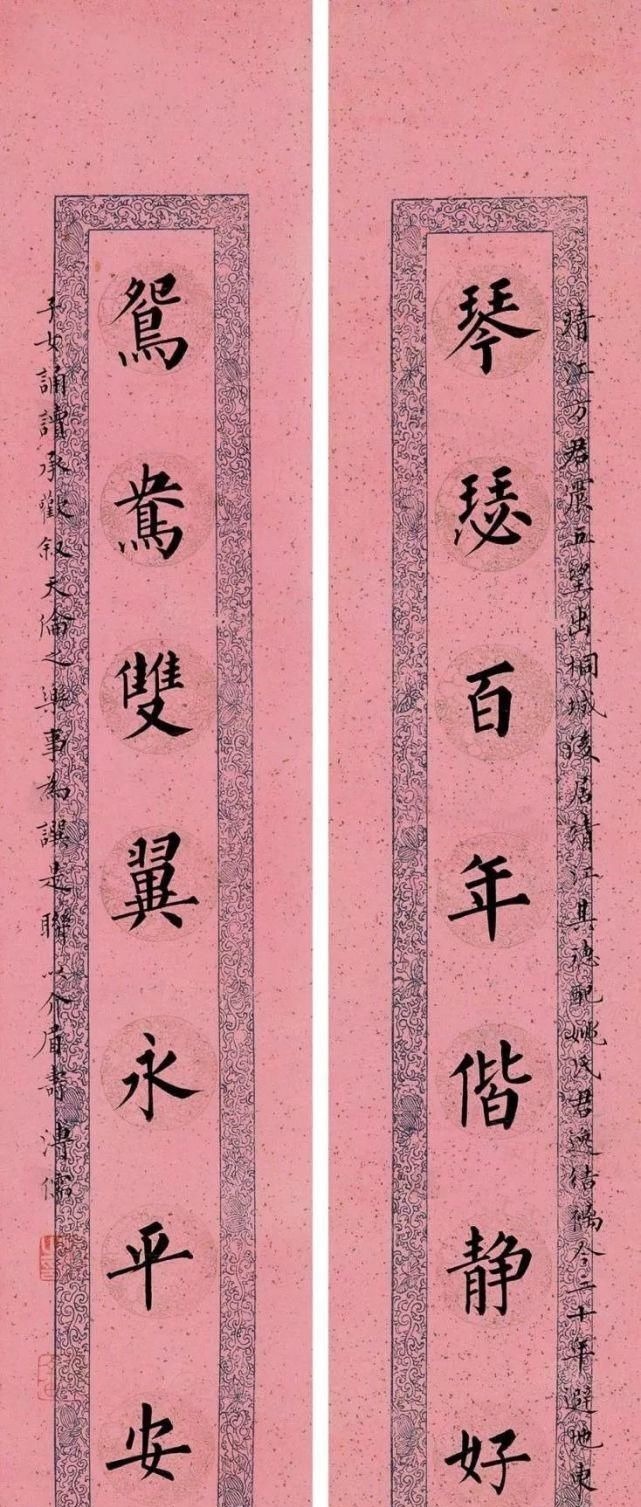 靖江方君震五望出桐城後居靖江其德配姚氏君逸结縭今二十年避地東
琴瑟百年偕静好
鴛鴦雙翼永平安
子女誦讀承歡叙天倫之樂事為譔是聯以介眉壽 溥儒